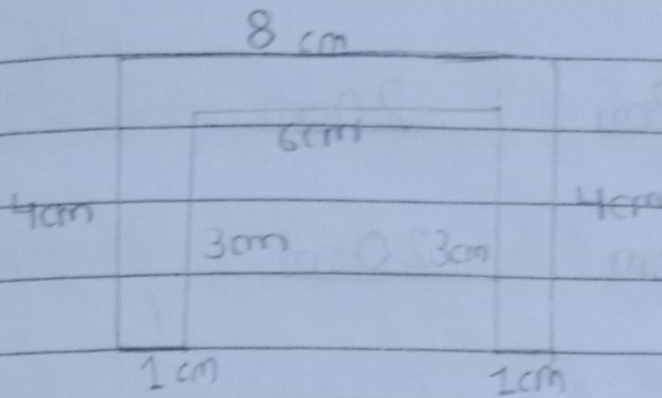 8 cm
6cm
4cm 4cm
3cm 3cm
1cm 1cm